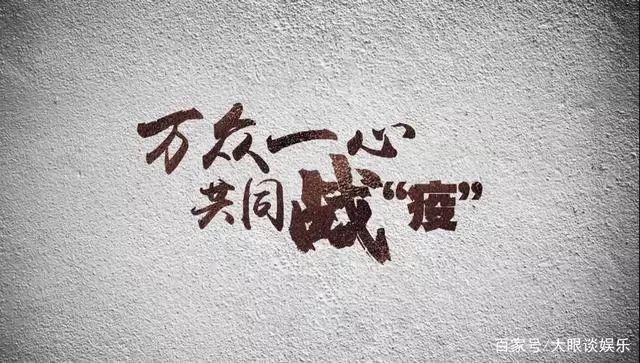 万众一心
共同战“疫”
百家号/大眼谈娱乐